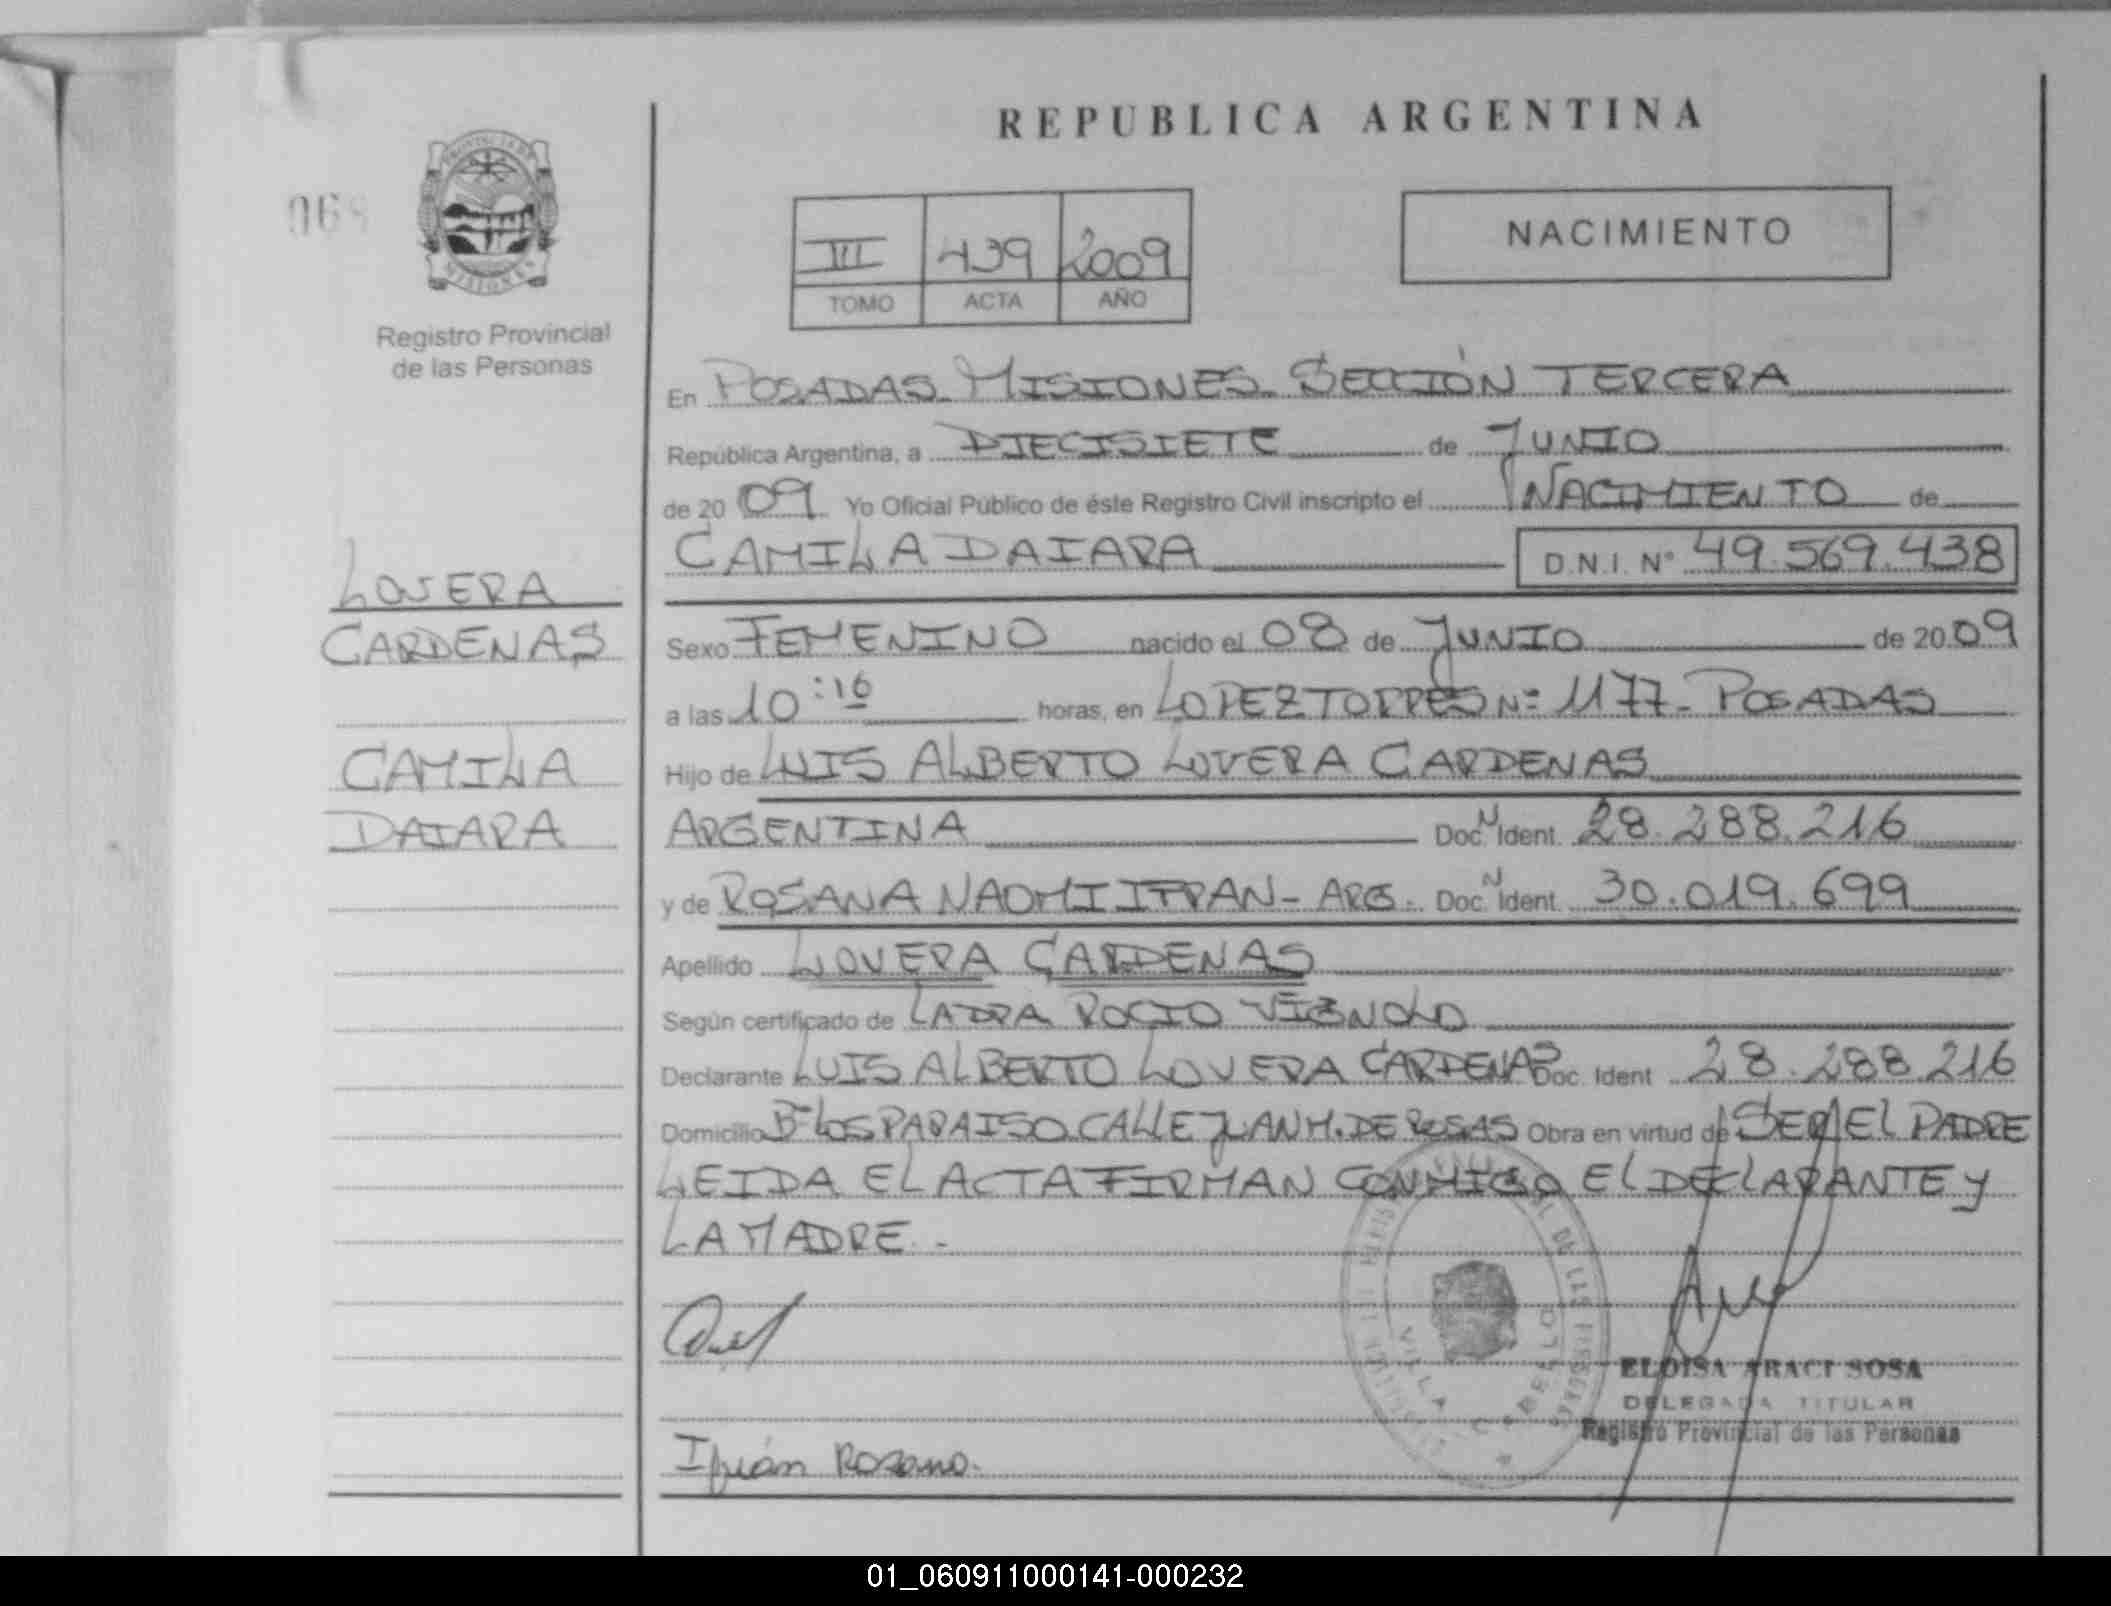 REPUBLICA ARGENTINA
068
PROVINCIA DE
MISIONES
Registro Provincial
de las Personas
III 439 2009
TOMO ACTA AÑO
NACIMIENTO
En POSADAS MISIONES SECCIÓN TERCERA
República Argentina, a DIECISIETE de JUNIO
de 2009 Yo Oficial Público de éste Registro Civil inscripto el NACIMIENTO de
CAMILA DAIARA D.N.I. Nº 49.569.438
LOVERA
CARDENAS
CAMILA
DAIARA
Sexo FEMENINO nacido el 08 de JUNIO de 2009
a las 10:16 horas, en LOPEZ TORRES Nº 1177- POSADAS
Hijo de LUIS ALBERTO LOVERA CARDENAS
ARGENTINA Doc. N Ident. 28.288.216
y de ROSANA NAOMI IFRAN- ARG. Doc. N Ident. 30.019.699
Apellido LOVERA CARDENAS
Según certificado de ROCIO VIGNOLO
Declarante LUIS ALBERTO LOVERA CARDENAS Doc. Ident 28.288.216
Domicilio Bº LOS PARAISO CALLE JUAN M. DE ROSAS Obra en virtud de SER EL PADRE
LEIDA EL ACTA FIRMAN CONMIGO EL DECLARANTE Y
LA MADRE.-
VILLA CABELLO
ELOISA ARACI SOSA
DELEGADA TITULAR
Registro Provincial de las Personas
Ifrán Rosana.
01_060911000141-000232